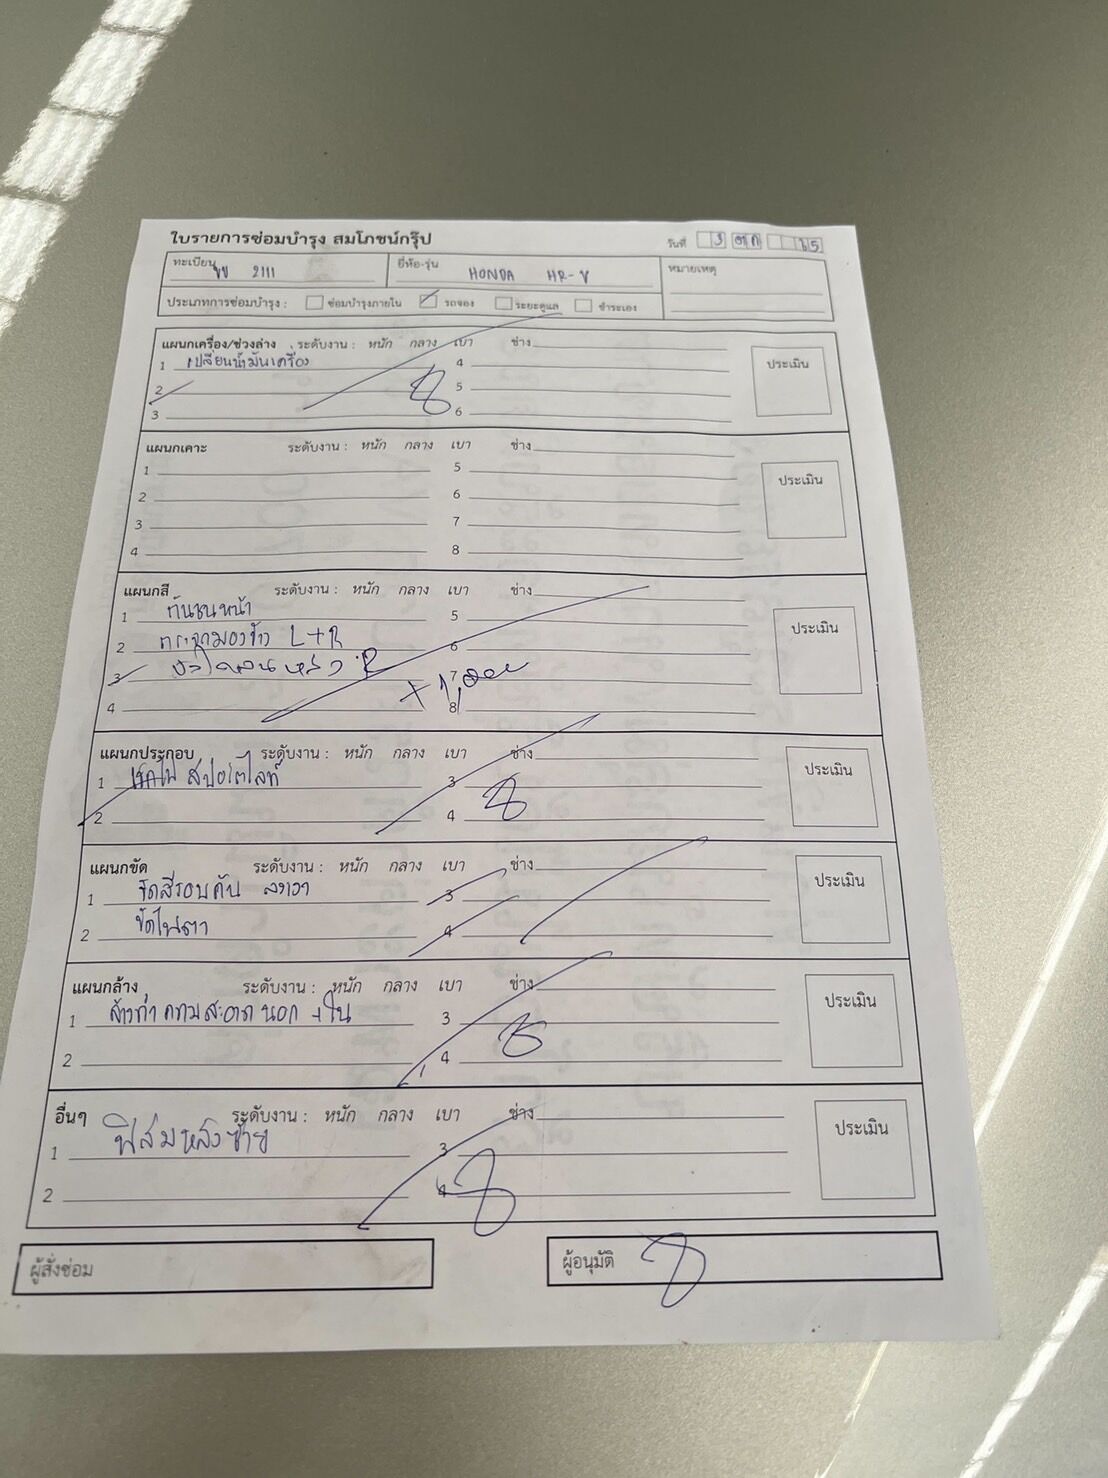 ใบรายการซ่อมบำรุง สมโภชน์กรุ๊ป
วันที่ 3 ตค 65
ทะเบียน 2111
ยี่ห้อ-รุ่น HONDA HR-V
หมายเหตุ
ประเภทการซ่อมบำรุง : ซ่อมบำรุงภายใน รถจอง ระยะดูแล ชำระเอง
แผนกเครื่อง/ช่วงล่าง ระดับงาน : หนัก กลาง เบา ช่าง
ประเมิน
1 เปลี่ยนน้ำมันเครื่อง 4
2 5
3 6
แผนกเคาะ ระดับงาน : หนัก กลาง เบา ช่าง
ประเมิน
1 5
2 6
3 7
4 8
แผนกสี ระดับงาน : หนัก กลาง เบา ช่าง
ประเมิน
1 กันชนหน้า 5
2 กระจกมองข้าง L+R 6
3 R 7
4 8
แผนกประกอบ ระดับงาน : หนัก กลาง เบา ช่าง
ประเมิน
1 สปอตไลท์ 3
2 4
แผนกขัด ระดับงาน : หนัก กลาง เบา ช่าง
ประเมิน
1 ขัดสีรอบคัน 3
2 ขัดไฟตา 4
แผนกล้าง ระดับงาน : หนัก กลาง เบา ช่าง
ประเมิน
1 ล้างทำความสะอาด นอก + ใน 3
2 4
อื่นๆ ระดับงาน : หนัก กลาง เบา ช่าง
ประเมิน
1 ฟิล์มหลังซ้าย 3
2 4
ผู้สั่งซ่อม
ผู้อนุมัติ